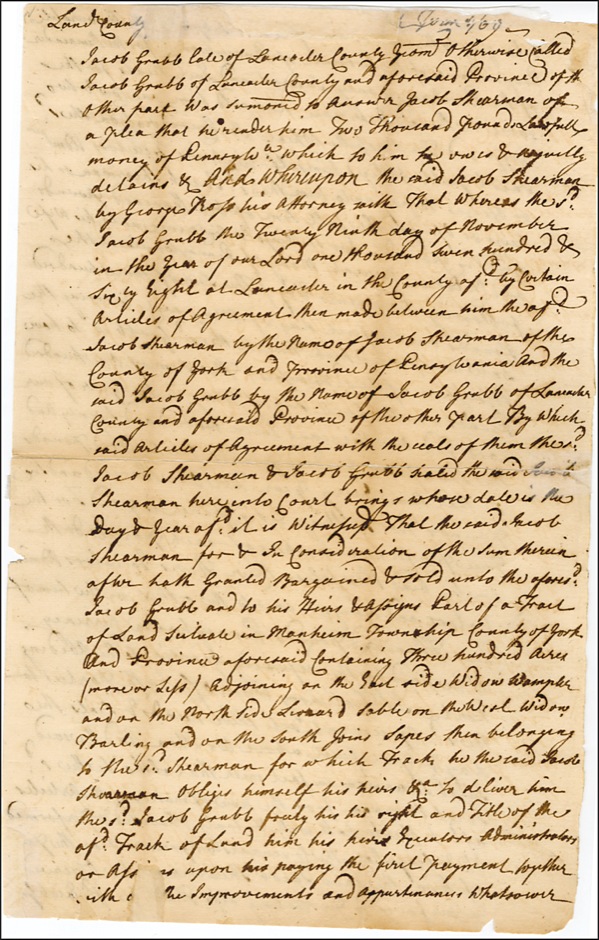 Land.r County
Jacob Grubb late of Lancaster County Yeom.n Otherwise Called
Jacob Grubb of Lancaster County and aforesaid Province of the
Other part was sumoned to Answer Jacob Shearman of
a plea that he render him Two Thousand pounds Lawfull
money of Pennsylv.a which to him he owes & unjustly
detains & And Whereupon the said Jacob Shearman
by George Ross his Attorney saith That Whereas the s.d
Jacob Grubb the Twenty Ninth day of November
in the Year of our Lord one thousand Seven hundred &
Sixty Eight at Lancaster in the County af.d by Certain
Articles of Agreement then made between him the af.d
Jacob Shearman by the Name of Jacob Shearman of the
County of York and Province of Pensylvania And the
said Jacob Grubb by the Name of Jacob Grubb of Lancaster
County and aforesaid Province of the other Part By Which
said Articles of Agreement with the seals of them the s.d
Jacob Shearman & Jacob Grubb seal'd the said Jacob
Shearman here into Court brings whose date is the
Day & Year af.d it is Witnessed That the said Jacob
Shearman for & In Consideration of the Sum therein
after hath Granted Bargained & sold unto the afores.d
Jacob Grubb and to his Heirs & Assigns Part of a Tract
of Land Scituate in Manheim Township County of York
And Province aforesaid Containing Three hundred Acres
(more or Less) Adjoining on the East side Widow Wampler
and on the North side Leonard Sable on the West Widow
Barling and on the South Joins then belonging
to the s.d Shearman for which Track he the said Jacob
Shearman Obliges himself his heirs &.a to deliver him
the s.d Jacob Grubb his his right and Title of the
af.d Track of Land him his heirs Executors Administrators
or upon his paying the first Payment together
the Improvements and appurtinances Whatsoever